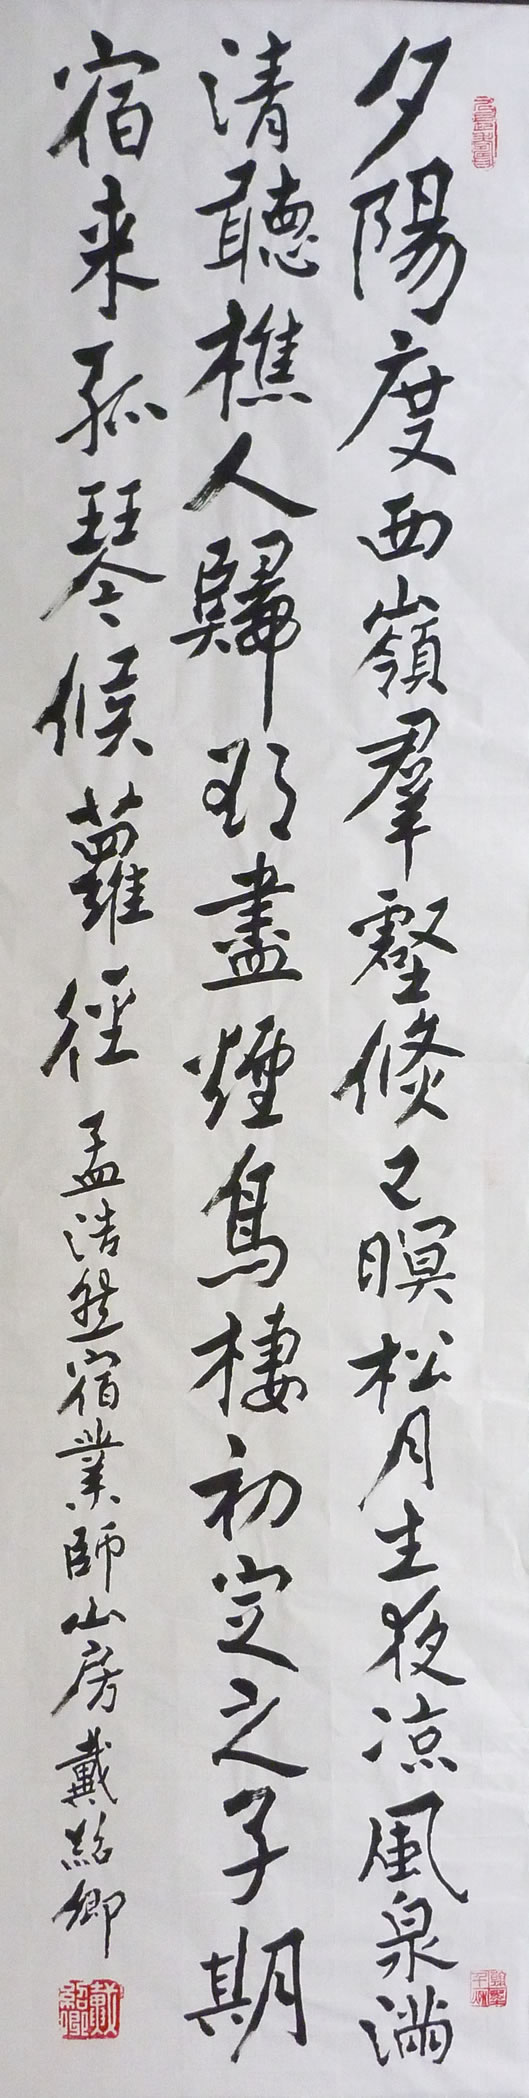 夕陽度西嶺羣壑倏已暝松月生夜涼風泉滿
清聽樵人歸欲盡煙鳥棲初定之子期
宿来孤琴候蘿徑孟浩然宿業師山房戴紹卿
戴紹卿